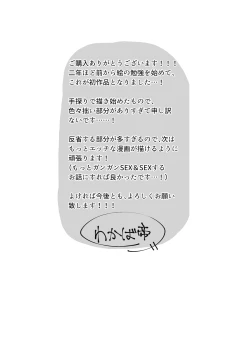 ご購入ありがとうございます！！！
二年ほど前から絵の勉強を始めて、
これが初作品となりました…！
手探りで描き始めたもので、
色々拙い部分がありすぎて申し訳
ないです……！
反省する部分が多すぎるので、次は
もっとエッチな漫画が描けるように
頑張ります！
（もっとガンガンSEX＆SEXする
お話にすれば良かったです…！）
よければ今後とも、よろしくお願い
致します！！！